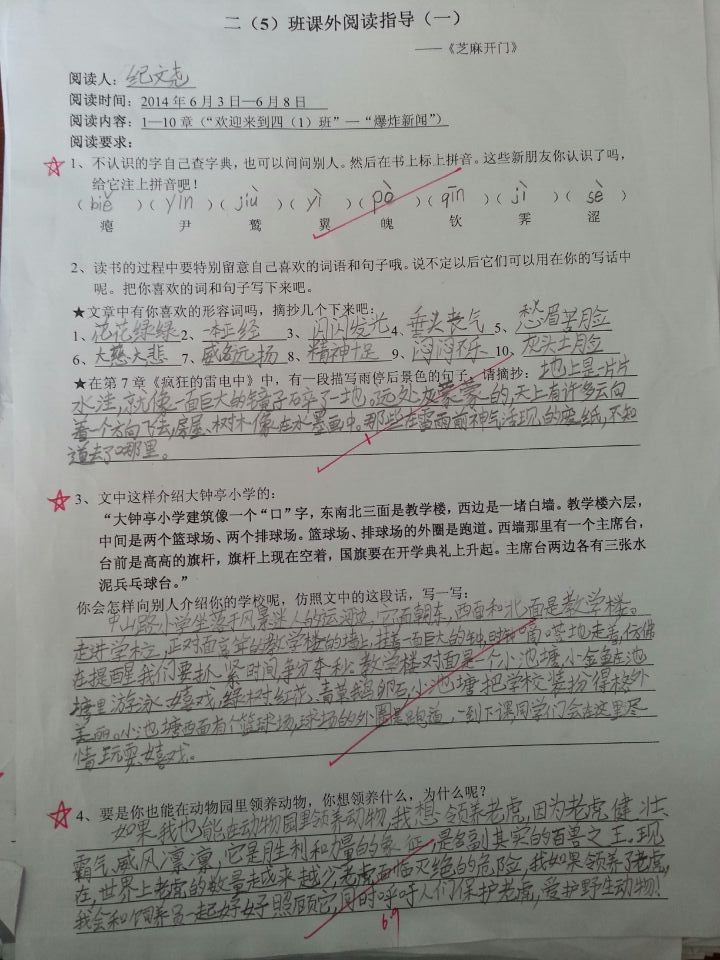 二（5）班课外阅读指导（一）
——《芝麻开门》
阅读人：纪文尧
阅读时间：2014年6月3日—6月8日
阅读内容：1—10章（“欢迎来到四（1）班”—“爆炸新闻”）
阅读要求：
1、不认识的字自己查字典，也可以问问别人。然后在书上标上拼音。这些新朋友你认识了吗，
给它注上拼音吧！
（biě）（yǐn）（jiù）（yì）（pò）（qīn）（jì）（sè）
瘪 尹 鹫 翼 魄 钦 霁 涩
2、读书的过程中要特别留意自己喜欢的词语和句子哦。说不定以后它们可以用在你的写话中
呢。把你喜欢的词和句子写下来吧。
★文章中有你喜欢的形容词吗，摘抄几个下来吧：
1、花花绿绿 2、一本正经 3、闪闪发光 4、垂头丧气 5、愁眉苦脸
6、大慈大悲 7、威名远扬 8、精神十足 9、闷闷不乐 10、灰头土脸
★在第7章《疯狂的雷电中》中，有一段描写雨停后景色的句子，请摘抄：地上是一片片
水洼，就像一面巨大的镜子碎了一地。远处灰蒙蒙的，天上有许多云向
着一个方向飞去，房屋、树木像在水墨画中。那些在雷雨前神气活现的废纸，不知
道去了哪里。
3、文中这样介绍大钟亭小学的：
“大钟亭小学建筑像一个“口”字，东南北三面是教学楼，西边是一堵白墙。教学楼六层，
中间是两个篮球场、两个排球场。篮球场、排球场的外圈是跑道。西墙那里有一个主席台，
台前是高高的旗杆，旗杆上现在空着，国旗要在开学典礼上升起。主席台两边各有三张水
泥乒乓球台。”
你会怎样向别人介绍你的学校呢，仿照文中的这段话，写一写：
中山路小学坐落于风景迷人的运河边，它面朝东，西面和北面是教学楼。
走进学校，正对面高耸的教学楼的墙上，挂着一面巨大的钟，时钟“嘀嗒”地走着，仿佛
在提醒我们要抓紧时间，争分夺秒。教学楼对面是一个小池塘，小金鱼在池
塘里游泳、嬉戏，绿树红花、青草鹅卵石，小池塘把学校装扮得格外
美丽。小池塘西面有个篮球场，球场的外圈是跑道，一到下课同学们会在这里尽
情玩耍、嬉戏。
4、要是你也能在动物园里领养动物，你想领养什么，为什么呢？
如果我也能在动物园里领养动物，我想领养老虎，因为老虎健壮、
霸气、威风凛凛，它是胜利和力量的象征，是名副其实的百兽之王。现
在，世界上老虎的数量越来越少，老虎面临灭绝的危险，我如果领养了老虎，
我会和饲养员一起好好照顾它，同时呼吁人们保护老虎，爱护野生动物！
6.9